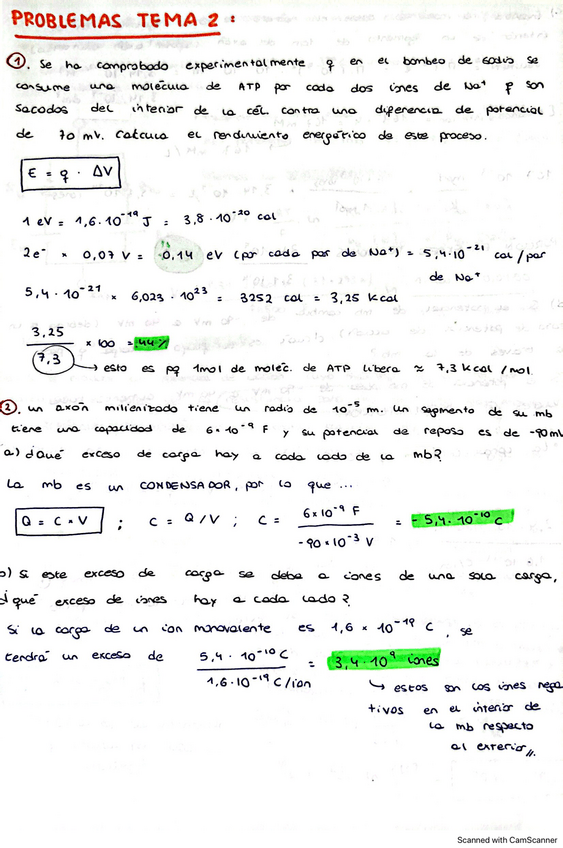 PROBLEMAS TEMA 2:
①. Se ha comprobado experimentalmente q en el bombeo de sodio se
consume una molécula de ATP por cada dos iones de Na⁺ q son
sacados del interior de la cél. contra una diferencia de potencial
de 70 mV. Calcula el rendimiento energético de este proceso.
E = q · ΔV
1 eV = 1,6·10⁻¹⁹ J = 3,8·10⁻²⁰ cal
2e⁻ × 0,07 V = 0,14 eV (por cada par de Na⁺) = 5,4·10⁻²¹ cal/par
de Na⁺
5,4·10⁻²¹ × 6,023·10²³ = 3252 cal = 3,25 Kcal
3,25 / 7,3 × 100 = 44%
→ esto es pq 1mol de moléc. de ATP libera ≈ 7,3 Kcal/mol.
②. Un axón mielinizado tiene un radio de 10⁻⁵ m. Un segmento de su mb
tiene una capacidad de 6×10⁻⁹ F y su potencial de reposo es de -90mV
a) ¿Qué exceso de carga hay a cada lado de la mb?
La mb es un CONDENSADOR, por lo que ...
Q = C × V ; C = Q/V ; C = 6×10⁻⁹ F / -90×10⁻³ V = -5,4·10⁻¹⁰ C
b) Si este exceso de carga se debe a iones de una sola carga,
¿qué exceso de iones hay a cada lado?
Si la carga de un ion monovalente es 1,6 × 10⁻¹⁹ C, se
tendrá un exceso de 5,4·10⁻¹⁰ C / 1,6·10⁻¹⁹ C/ion = 3,4·10⁹ iones
→ estos son los iones nega
tivos en el interior de
la mb respecto
al exterior
Scanned with CamScanner